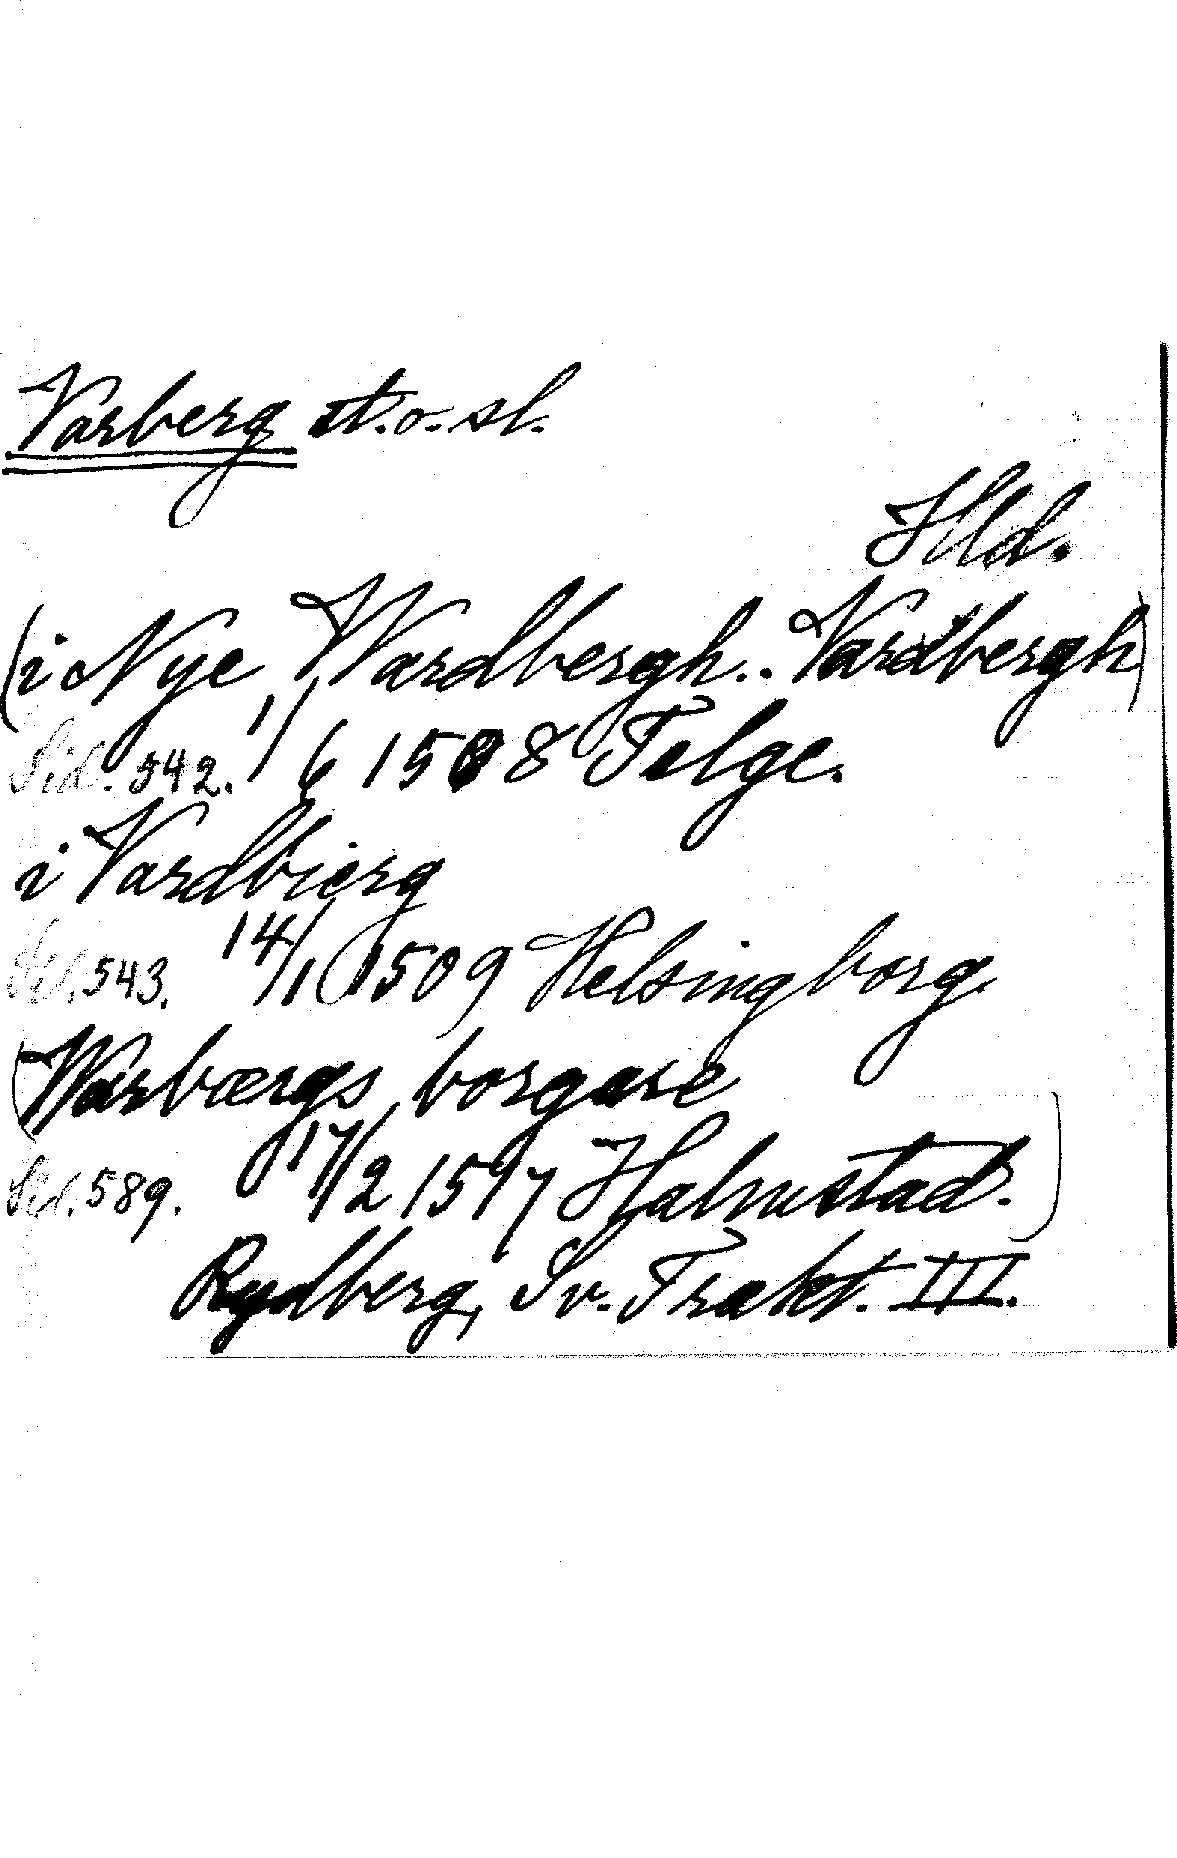 Varberg st. o. sl.
Hld.
(i Nye Wardbergh.. Vardbergh)
Sid. 542. 1/6 1508 Telge.
i Vardbierg
Sid. 543. 14/1 1509 Helsingborg.
(Warbærgs borgare
Sid. 589. 17/2 1517 Halmstad.)
Rydberg, Sv. Trakt. III.